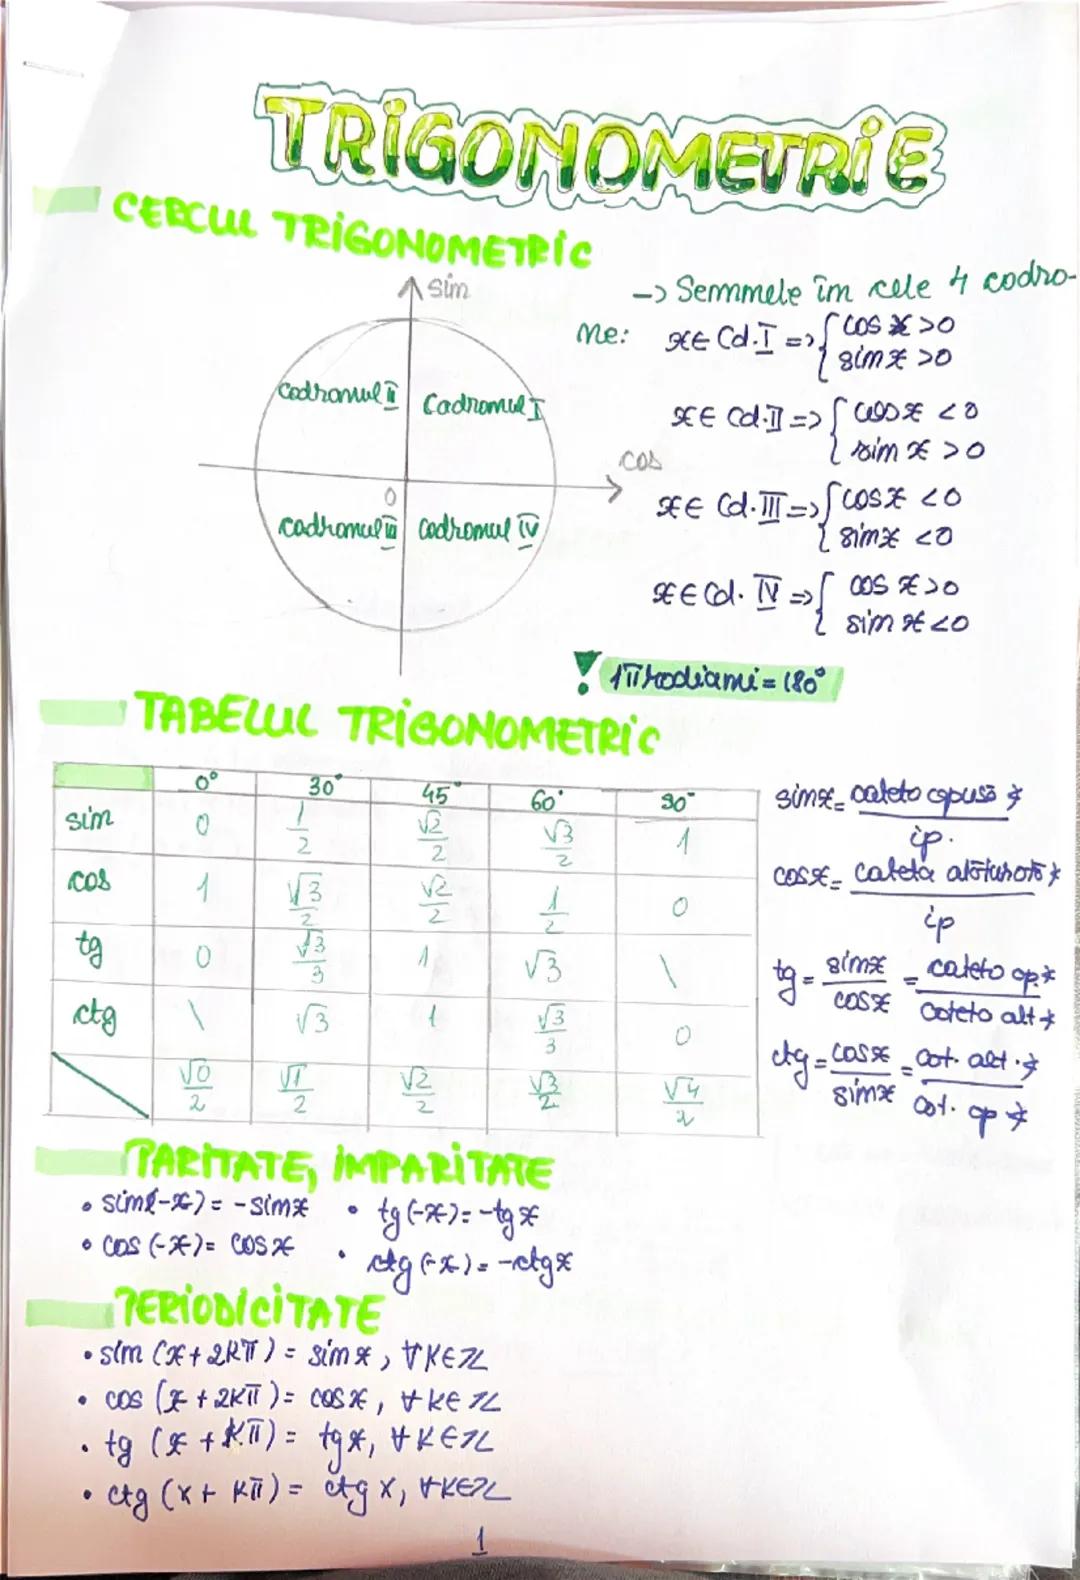 TRIGONOMETRIE
CERCUL TRIGONOMETRIC
sin
Cadranul II Cadranul I
cos
0
cadranul III cadranul IV
-> Semnele în cele 4 cadra-
ne: x∈ Cd.I => { cos x >0
sin x >0
x∈ Cd.II => { cos x <0
sin x >0
x∈ Cd.III => { cos x <0
sin x <0
x∈ Cd. IV => { cos x >0
sin x <0
! 1π radiani = 180°
TABELUL TRIGONOMETRIC
0° 30° 45° 60° 90°
sin 0 1/2 √2/2 √3/2 1
cos 1 √3/2 √2/2 1/2 0
tg 0 √3/3 1 √3 \
ctg \ √3 1 √3/3 0
√0/2 √1/2 √2/2 √3/2 √4/2
sinx = cateta opusă ∢ / ip.
cosx = cateta alăturată ∢ / ip
tg = sinx/cosx = cateta op.∢ / cateta alt ∢
ctg = cosx/sinx = cat. alt.∢ / cat. op ∢
PARITATE, IMPARITATE
• sin(-x) = -sinx • tg (-x) = -tg x
• cos (-x) = cos x • ctg (-x) = -ctg x
PERIODICITATE
• sin (x + 2kπ) = sin x, ∀ k∈ℤ
• cos (x + 2kπ) = cos x, ∀ k∈ ℤ
• tg (x + kπ) = tg x, ∀ k∈ℤ
• ctg (x + kπ) = ctg x, ∀k∈ℤ
1